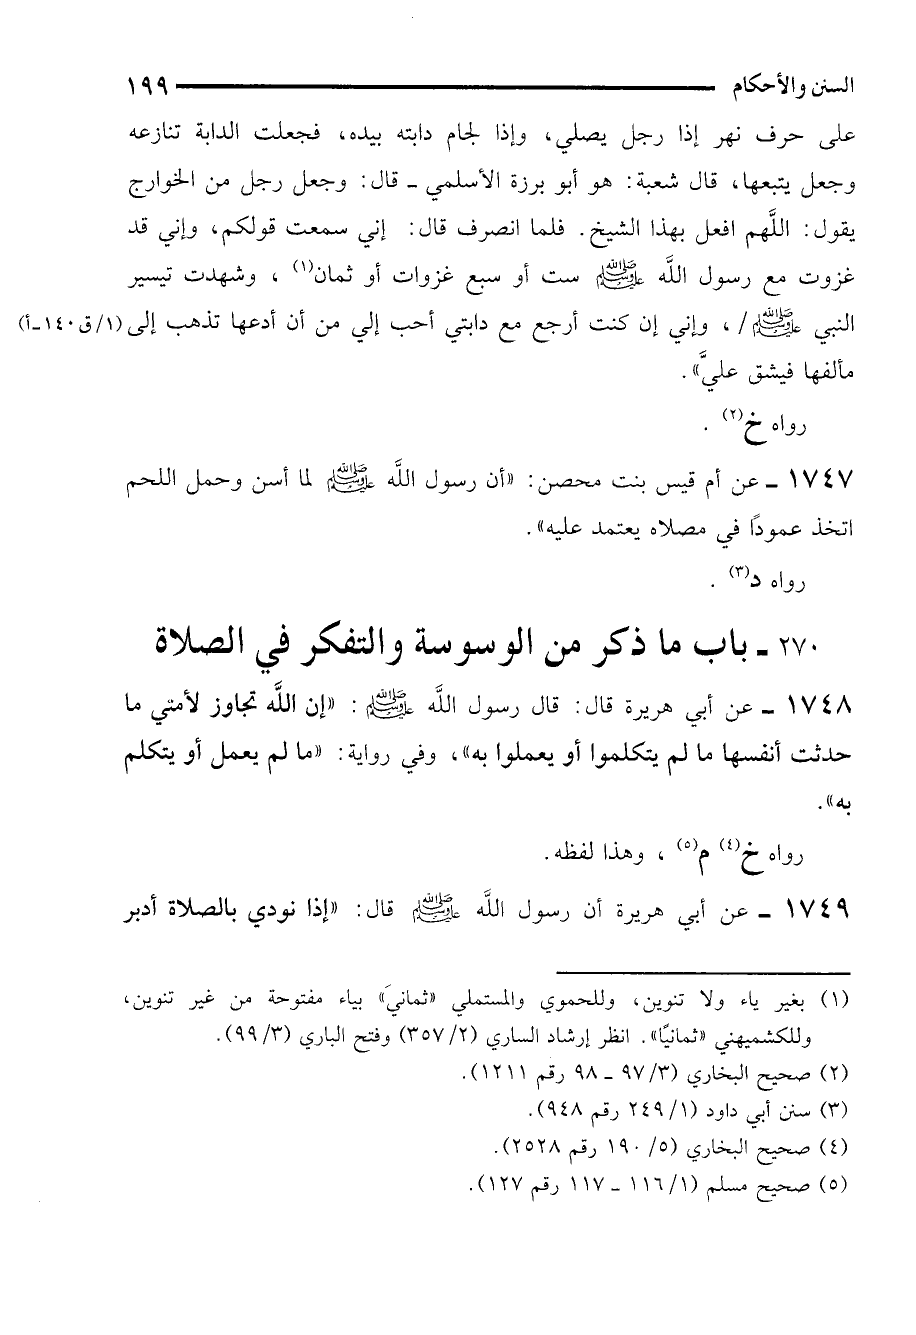 السنن والأحكام ١٩٩
على حرف نهر إذا رجل يصلي، وإذا لجام دابته بيده، فجعلت الدابة تنازعه
وجعل يتبعها، قال شعبة: هو أبو برزة الأسلمي ـ قال: وجعل رجل من الخوارج
يقول: اللَّهم افعل بهذا الشيخ. فلما انصرف قال: إني سمعت قولكم، وإني قد
غزوت مع رسول اللَّه ﷺ ست أو سبع غزوات أو ثمان(١) ، وشهدت تيسير
النبي ﷺ/ ، وإني إن كنت أرجع مع دابتي أحب إلي من أن أدعها تذهب إلى (١/ق١٤٠-أ)
مألفها فيشق عليَّ».
رواه خ(٢) .
١٧٤٧ ـ عن أم قيس بنت محصن: «أن رسول اللَّه ﷺ لما أسن وحمل اللحم
اتخذ عمودًا في مصلاه يعتمد عليه».
رواه د(٣) .
٢٧٠ ـ باب ما ذكر من الوسوسة والتفكر في الصلاة
١٧٤٨ ـ عن أبي هريرة قال: قال رسول اللَّه ﷺ : «إن اللَّه تجاوز لأمتي ما
حدثت أنفسها ما لم يتكلموا أو يعملوا به»، وفي رواية: «ما لم يعمل أو يتكلم
به».
رواه خ(٤) م(٥) ، وهذا لفظه.
١٧٤٩ ـ عن أبي هريرة أن رسول اللَّه ﷺ قال: «إذا نودي بالصلاة أدبر
(١) بغير ياء ولا تنوين، وللحموي والمستملي «ثمانيَ» بياء مفتوحة من غير تنوين،
وللكشميهني «ثمانيًا». انظر إرشاد الساري (٢/ ٣٥٧) وفتح الباري (٣/ ٩٩).
(٢) صحيح البخاري (٣/ ٩٧ ـ ٩٨ رقم ١٢١١).
(٣) سنن أبي داود (١/ ٢٤٩ رقم ٩٤٨).
(٤) صحيح البخاري (٥/ ١٩٠ رقم ٢٥٢٨).
(٥) صحيح مسلم (١/ ١١٦ ـ ١١٧ رقم ١٢٧).